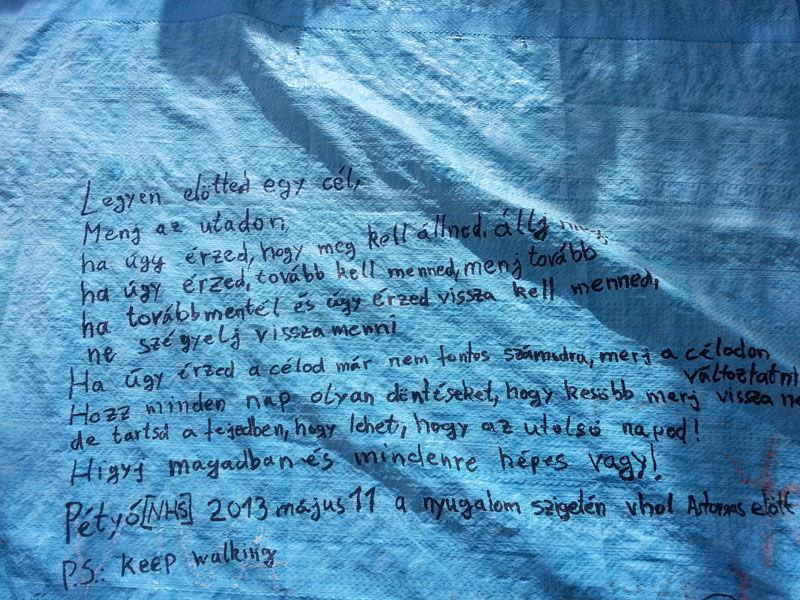 Legyen előtted egy cél,
Menj az utadon,
ha úgy érzed, hogy meg kell állnod, állj meg,
ha úgy érzed, tovább kell menned, menj tovább
ha továbbmentél és úgy érzed vissza kell menned,
ne szégyelj visszamenni
Ha úgy érzed a célod már nem fontos számodra, merj a célodon
változtatni
Hozz minden nap olyan döntéseket, hogy később merj vissza
de tartsd a fejedben, hogy lehet, hogy az utolsó napod!
Higyj magadban és mindenre képes vagy!
Pétyó[NHS] 2013 május 11 a nyugalom szigetén vhol előtt
P.S.: Keep walking